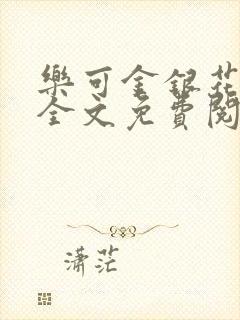 樂可金銀花
全文免費閱
潇茫